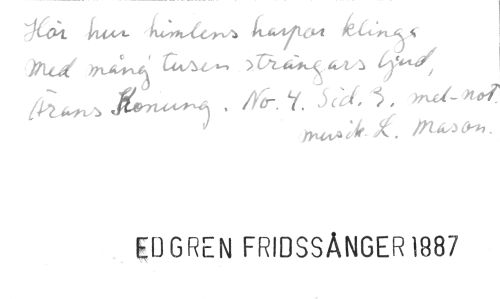 Hör hur himlens harpor klinga
med mång tusen strängars ljud,
Ärans Konung. No. 4. Sid. 3. mel-not.
musik L. Mason.
EDGREN FRIDSSÅNGER 1887